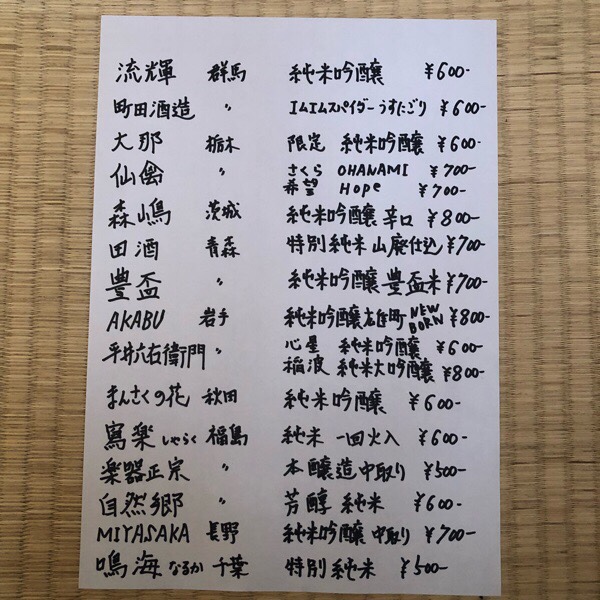 流輝 群馬 純米吟醸 ¥600-
町田酒造 〃 エムエムスパイダーうすにごり ¥600-
大那 栃木 限定 純米吟醸 ¥600-
仙禽 〃 さくら OHANAMI ¥700-
希望 HOPe ¥700-
森嶋 茨城 純米吟醸 辛口 ¥800-
田酒 青森 特別純米 山廃仕込 ¥700-
豊盃 〃 純米吟醸 豊盃米 ¥700-
AKABU 岩手 純米吟醸 雄町 NEW BORN ¥800-
平井六右衛門 〃 心星 純米吟醸 ¥600-
稲波 純米大吟醸 ¥800-
まんさくの花 秋田 純米吟醸 ¥600-
寫楽 しゃらく 福島 純米 一回火入 ¥600-
楽器正宗 〃 本醸造 中取り ¥500-
自然郷 〃 芳醇 純米 ¥600-
MIYASAKA 長野 純米吟醸 中取り ¥700-
鳴海 なるか 千葉 特別純米 ¥500-